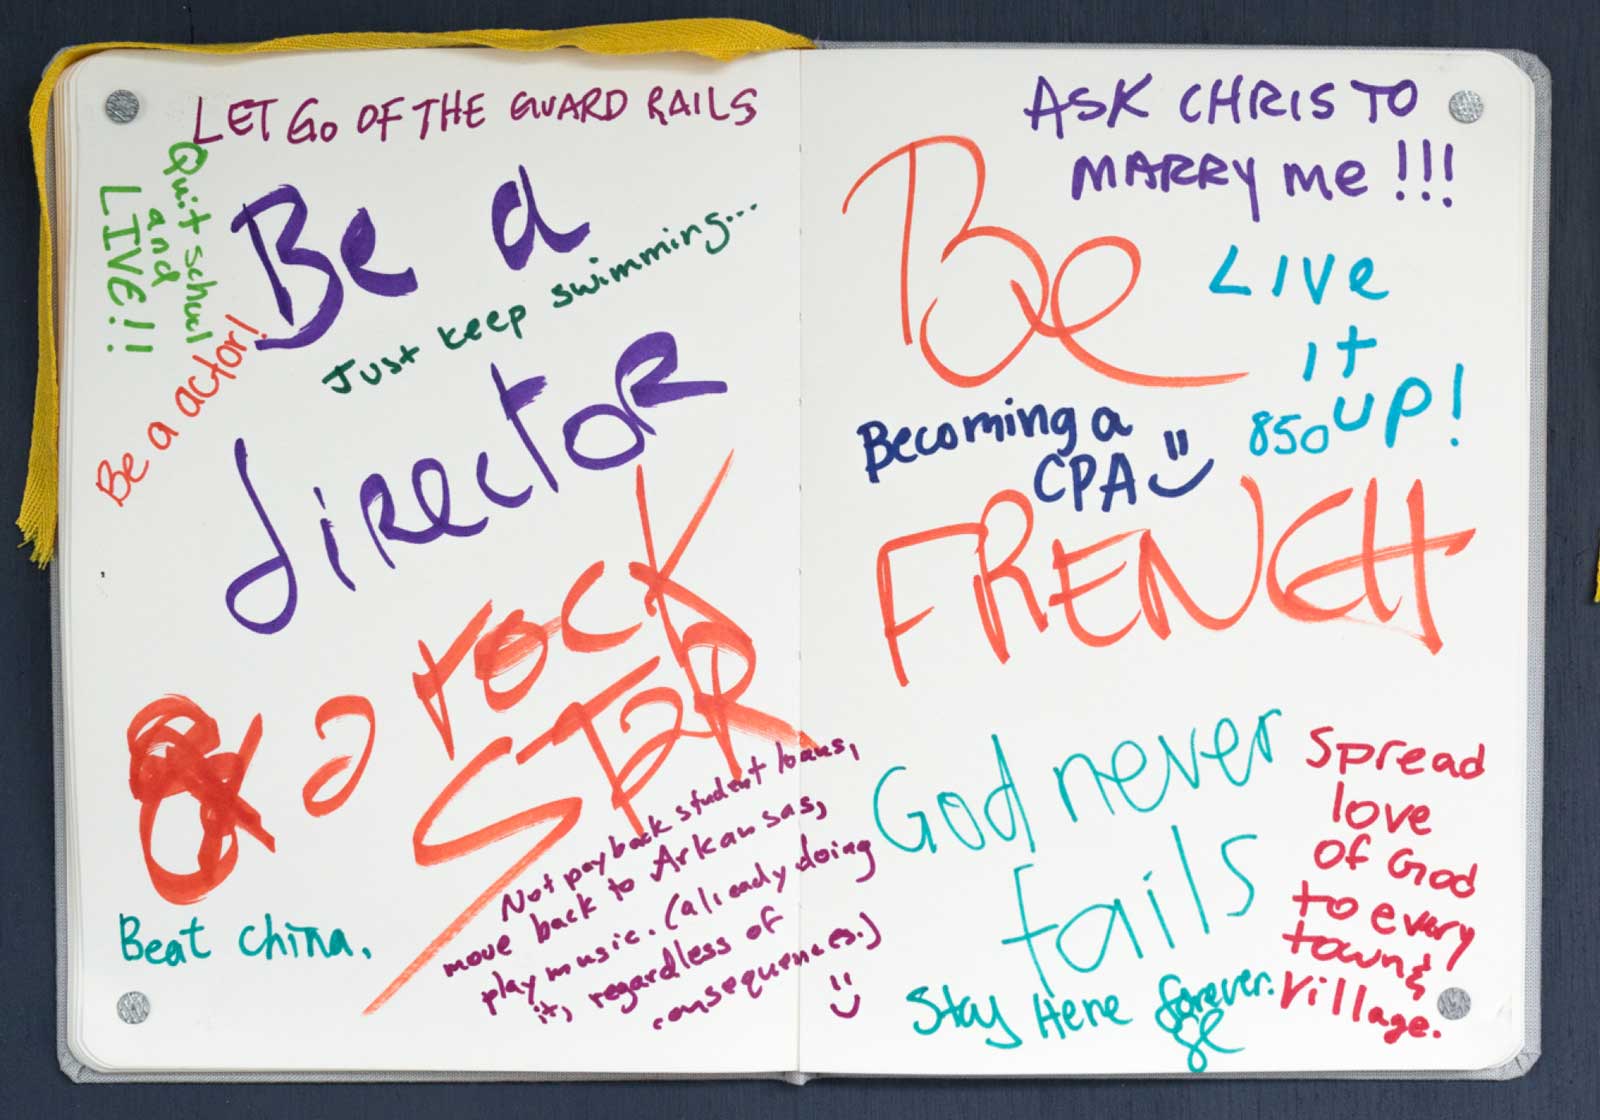 LET GO OF THE GUARD RAILS
Quit school
and
LIVE!!!
Be a
director
Just keep swimming...
Be a actor!
& a rock
STAR
Beat china.
Not pay back student loans,
move back to Arkansas,
play music. (already doing
it, regardless of
consequences.)
ASK CHRIS TO
MARRY me !!!
Be
FRENCH
LIVE
it
UP!
850
Becoming a
CPA
God never
fails
Spread
love
of God
to every
town &
Village.
Stay Here forever.